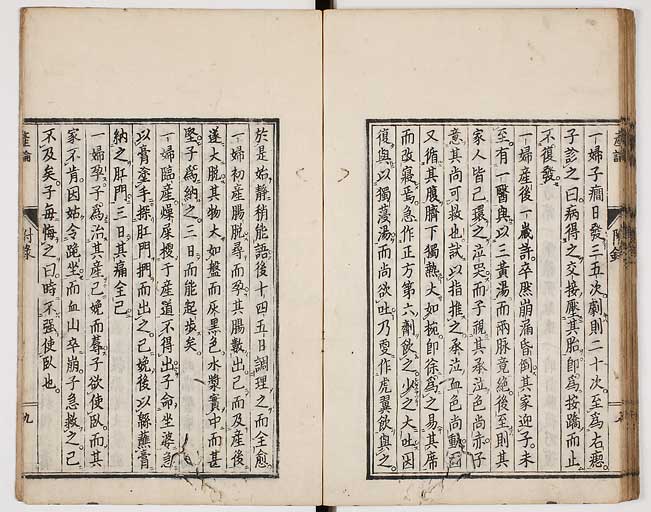 一婦子癇日發三五次劇則二十次至爲右瘛
子診之曰病得之交接壓其胎即爲按蹻而止
不復發
一婦產後一歲許卒然崩漏昏倒其家迎子未
至有一醫與以三黃湯而兩脉竟絕後至則其
家人皆已環之泣哭而子視其承泣色尚赤子
意其尚可救也試以指推之承泣血色尚動因
又循其腹臍下獨熱大如椀即徐爲之易其席
而改寢焉急作正方第六劑飲之少之大吐因
復與以獨蓡湯而尚欲吐乃更作虎翼飲與之
於是始靜稍能語後十四五日調理之而全愈
一婦初產腸脫尋而孕其腸數出已而及產後
遂大脫其物大如盤而灰黑色水漿實中而甚
堅子爲納之三日而能起步矣
一婦臨產燥屎攪于產道不得出子命坐婆急
以膏塗手探肛門捫而出之已娩後以緜蘸膏
納之肛門三日其痛全已
一婦孕子爲治其產已娩而蓐子欲使臥而其
家不肯因姑令跪坐而血山卒崩子急救之已
不及矣子每悔之曰時不强使臥也
產論
附錄
九